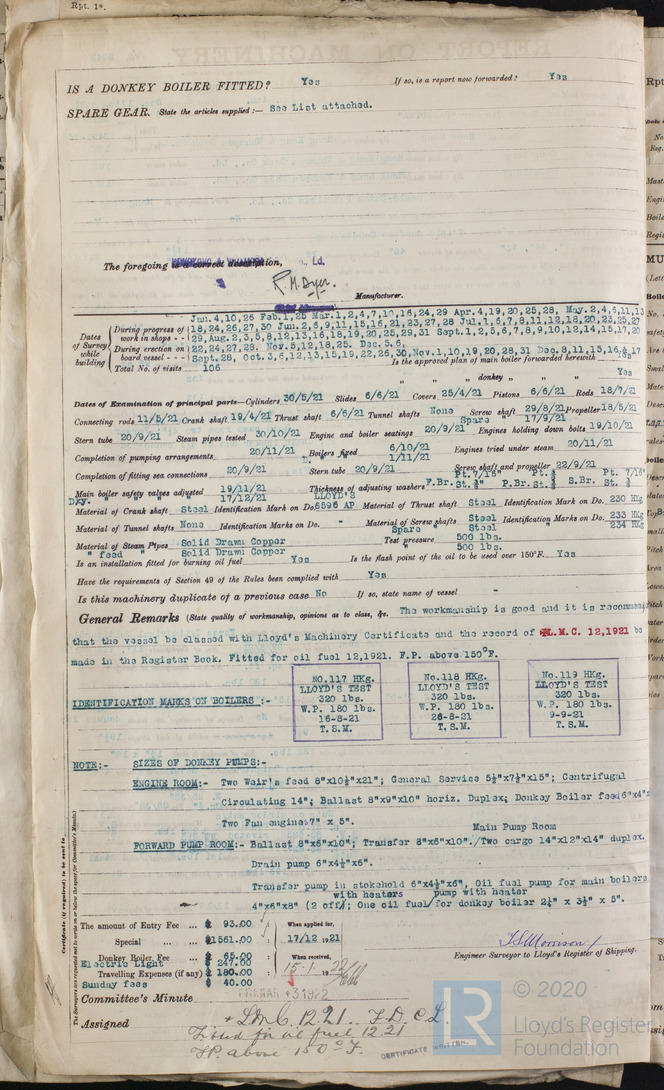 Rpt. 1a.
IS A DONKEY BOILER FITTED? Yes If so, is a report now forwarded? Yes
SPARE GEAR. State the articles supplied:— See List attached.
The foregoing is a correct description, Ld.
R. M. Dyer.
Manufacturer.
Dates of Survey while building
During progress of work in shops - -
Jan. 4,10,26 Feb.1,25 Mar.1,2,4,7,10,16,24,29 Apr.4,19,20,25,28, May.2,4,6,11,13
18,24,26,27,30 Jun.2,6,9,11,15,16,21,23,27,28 Jul.1,6,7,8,11,12,18,20,23,25,27
29,Aug.2,3,5,8,12,13,16,18,19,20,25,29,31 Sept.1,2,5,6,7,8,9,10,12,14,15,17,20
During erection on board vessel - - -
22,24,27,28. Nov.5,12,18,25. Dec.5,6.
Sept.28, Oct.3,6,12,13,15,19,22,26,30,Nov.1,10,19,20,28,31 Dec.8,11,15,16,& 17
Total No. of visits 106 Is the approved plan of main boiler forwarded herewith Yes
" " donkey " " " Yes
Dates of Examination of principal parts—Cylinders 30/5/21 Slides 6/6/21 Covers 25/4/21 Pistons 6/6/21 Rods 18/7/21
Connecting rods 11/5/21 Crank shaft 19/4/21 Thrust shaft 6/6/21 Tunnel shafts None Screw shaft 29/8/21 Propeller 18/5/21
Spare 17/9/21
Stern tube 20/9/21 Steam pipes tested 30/10/21 Engine and boiler seatings 20/9/21 Engines holding down bolts 19/10/21
Completion of pumping arrangements 20/11/21 Boilers fixed 6/10/21 Engines tried under steam 20/11/21
D. " 1/11/21
Completion of fitting sea connections 20/9/21 Stern tube 20/9/21 Screw shaft and propeller 22/9/21
Main boiler safety valves adjusted 19/11/21 Thickness of adjusting washers F.Br. Pt.7/16" St. P.Br. Pt. St. S.Br. Pt. 7/16" St.
Dky. " 17/12/21
Material of Crank shaft Steel Identification Mark on Do. LLOYD'S 6596 AP Material of Thrust shaft Steel Identification Mark on Do. 230 HKg
Material of Tunnel shafts None Identification Marks on Do. " Material of Screw shafts Steel Identification Marks on Do. 233 HKg
Spare Steel 234 HKg
Material of Steam Pipes Solid Drawn Copper Test pressure 500 lbs.
" feed " Solid Drawn Copper " 500 lbs.
Is an installation fitted for burning oil fuel Yes Is the flash point of the oil to be used over 150°F. Yes
Have the requirements of Section 49 of the Rules been complied with Yes
Is this machinery duplicate of a previous case No If so, state name of vessel "
General Remarks (State quality of workmanship, opinions as to class, &c. The workmanship is good and it is recommended
that the vessel be classed with Lloyd's Machinery Certificate and the record of L.M.C. 12,1921 be
made in the Register Book. Fitted for oil fuel 12,1921. F.P. above 150°F.
IDENTIFICATION MARKS ON BOILERS :-
NO.117 HKg.
LLOYD'S TEST
320 lbs.
W.P. 180 lbs.
16-8-21
T.S.M.
No.118 HKg.
LLOYD'S TEST
320 lbs.
W.P. 180 lbs.
26-8-21
T.S.M.
No.119 HKg.
LLOYD'S TEST
320 lbs.
W.P. 180 lbs.
9-9-21
T.S.M.
NOTE:- SIZES OF DONKEY PUMPS:-
ENGINE ROOM:- Two Weir's feed 8"x10½"x21"; General Service 5½"x7½"x15"; Centrifugal
Circulating 14"; Ballast 8"x9"x10" horiz. Duplex; Donkey Boiler feed 6"x4"x
Two Fan engines 7" x 5".
Main Pump Room
FORWARD PUMP ROOM:- Ballast 8"x6"x10"; Transfer 8"x6"x10"./Two cargo 14"x12"x14" duplex.
Drain pump 6"x4½"x6".
Transfer pump in stokehold 6"x4½"x6", Oil fuel pump for main boilers
with heaters pump with heater
4"x6"x8" (2 off); One oil fuel/for donkey boiler 2¼" x 3½" x 5".
Certificate (if required) to be sent to
The Surveyors are requested not to write on or below the space for Committee's Minute.
The amount of Entry Fee ... $ 93.00 When applied for,
Special ... $1561.00 17/12 1921
Donkey Boiler Fee ... $ 65.00 When received,
Electric Light $ 247.00
Travelling Expenses (if any) $ 180.00 15.1.1922
Sunday fees $ 40.00
T.S. Morrison
Engineer Surveyor to Lloyd's Register of Shipping.
Committee's Minute
Assigned + LMC. 12.21. F.D. C.L.
Fitted for oil fuel 12.21
F.P. above 150°F.
CERTIFICATE WRITTEN.
LR
© 2020
Lloyd's Register
Foundation